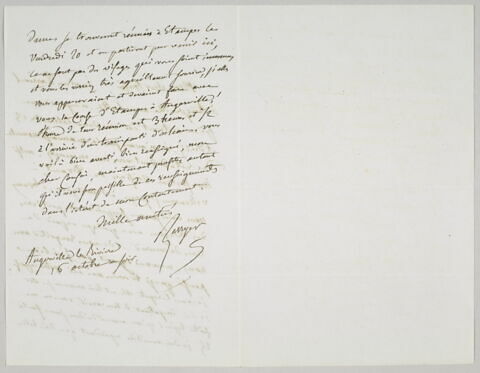 Dames se trouveront réunies à Etampes le
Vendredi 20 et en partiront pour venir ici,
ce ne sont pas des visages qui vous soient inconnus
et vous les verriez très agréablement sourire si elles
vous appercevaient et devaient faire avec
vous la course d'Etampes à Augerville;
l'heure de leur réunion est 3 heures et 1/2
à l'arrivée d'un train parti d'orléans, vous
voilà bien averti bien renseigné, mon
cher cousin, maintenant profitez autant
qu'il sera possible de ces renseignements
dans l'intérêt de mon contentement.
Mille amitiés
Berryer
Augerville la Rivière
16 octobre